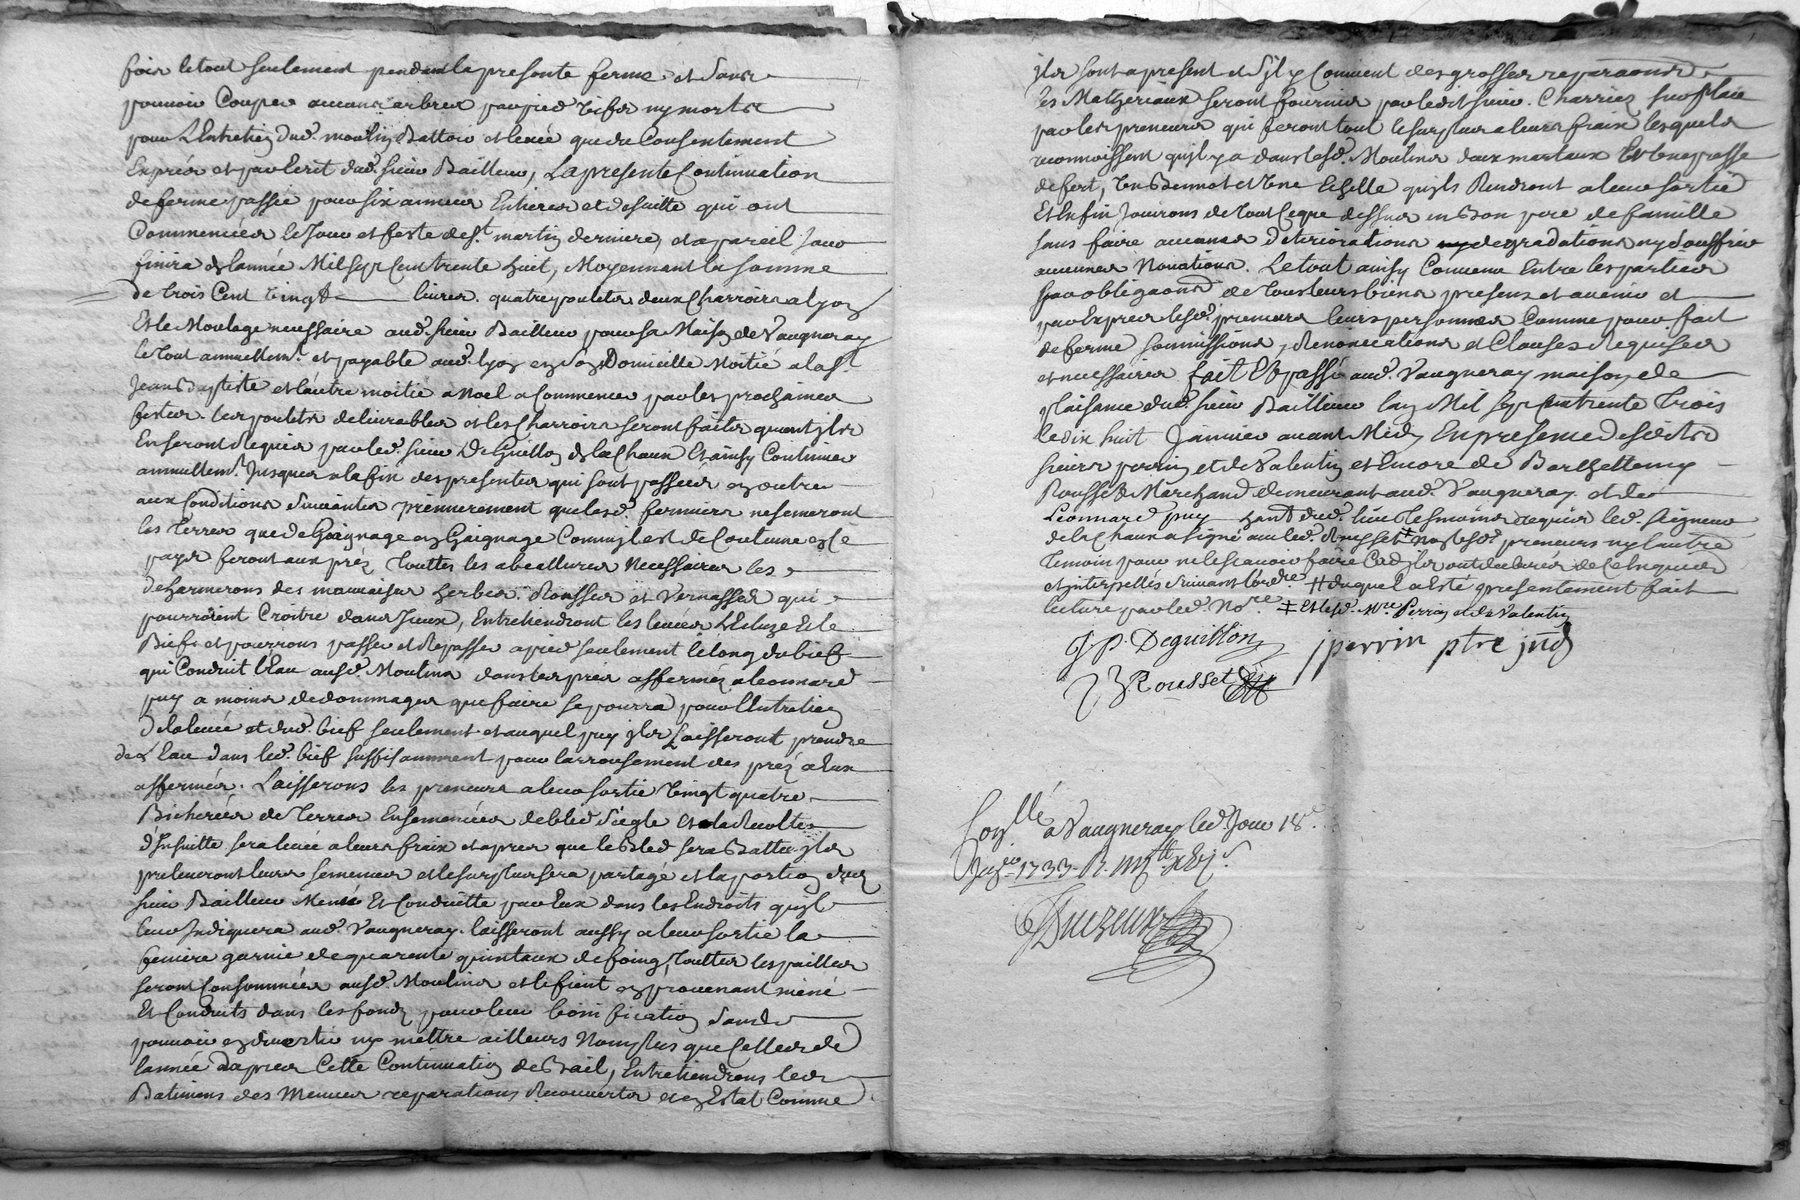 fois le tout seulement pendant la presente ferme et sans
pouvoir Couper aucuns arbres par pied vifs ny morts
pour L'Entretien dud. moulin Battoir et levée que du Consentement
Exprés et par Ecrit dud. sieur Bailleur, La presente Continuation
de ferme passée pour six années Entieres et desuitte qui ont
Commencées le Jour et feste de St martin derniere, et a pareil Jour
finira de lannée Mil sept Cent trente huit, Moyennant la somme
de trois Cent vingt livres. quatre poulets deux Charroirs a lyon
Et le Moulage necessaire aud. sieur Bailleur pour sa Maison de Vaugneray
le tout annuellemt. et payable aud. lyon en son Domicille Moitié a la St
Jean Baptiste et l'autre moitié a Noel a Commencer par les prochaines
festes. les poulets delivrables et les Charroirs seront faits quant ils
En seront Requis par led. sieur DeGuillon de la Chaux Et ainsy Continuer
annuellemt. Jusques a la fin des presentes qui sont passées en outre
aux Conditions suivantes premierement que lesd. fermiers ne semeront
les terres que de Gaignage en Gaignage Comme il est de Coutume en Ce
pays feront aux prez touttes les abeallures Necessaires les
desarmerons des mauvaises herbes Ronsses et Vernasses qui
pourroient Croitre dans Iceux, Entretiendront les levées L'Ecluze Et le
Bief et pourrons passer et Repasser a pied seulement le long du bief
qui Conduit l'Eau ausd. Moulins dans les prés affermés a leonnard
puy a moins de dommages que faire se pourra pour l'Entretien
de la levée et dud. bief seulement et auquel puy ils Laisseront prendre
de L'eau dans led. bief suffisamment pour larrousement des prez a luy
affermés. Laisserons les preneurs a leur sortie vingt quatre
Bicherées de terres Ensemencées de bled seigle Et la Recolte
d'Ensuitte sera levée a leurs fraix et apres que le Bled sera Battu ils
preleveront leurs semences et le surplus sera partagé et la portion dud
sieur Bailleur Menée Et Conduitte par Eux dans les Endroits qu'il
leur Indiquera aud. Vaugneray. laisseront aussy a leur sortie la
feniere garnie de quarente quintaux de foing, touttes les pailles
seront Consommées ausd. Moulins et le fient en provenant mené
Et Conduits dans les fonds pour leur bonification sans
pouvoir en divertir ny mettre ailleurs Non plus que Celles de
lannée dapres Cette Continuation de Bail, Entretiendrons les
Batimens des Menues reparations Recouverts et en Estat Comme
ils sont a present et s'il y Convient des grosses reparaons
les Matheriaux seront fournis par ledit sieur. Charriez sur place
par les preneurs qui feront tout le surplus a leurs fraix lesquels
reconnoissent qu'il y a dans lesd. Moulins deux marteaux Et Une passe
de fert, Un Bennot et Une Eschelle qu'ils Rendront a leur sortie
Et Enfin Jouirons de tout Ce que dessus en Bon pere de famille
sans faire aucunes deteriorations ny degradations ny souffrir
aucunes Novations. Le tout ainsy Convenu Entre les parties
par obligaons de tous leurs biens presens et avenir et
par Exprés lesd. preneurs leurs personnes Comme pour fait
de ferme soumissions, Renonciations et Clauses Requises
et necessaires fait Et passé aud. Vaugneray maison de
plaisance dud. sieur Bailleur lan Mil sept Cent trente trois
le dix huit Janvier avant Midy En presence desdits
sieurs perrin et de Valentin et Encore de Barthellemy
Rousset Marchand demeurant aud. Vaugneray. et de
Leonnard puy habt. dud. lieu temoins requis led. seigneur
de la Chaux a signé avec led. Rousset ‡ Non lesd. preneurs ny lautre
temoin pour ne le scavoir faire Ce qu'ils ont declarés de Ce Enquis
et interpellés suivant l'ordre # duquel a Esté presentement fait
lecture par led. Nore. ‡ Et lesd. Mre Perrin et de Valentin
J P Deguillon
jperrin ptre jud
B Rousset
Conllé a Vaugneray led. Jour 18e.
Janvier 1733. R.
Duczeux